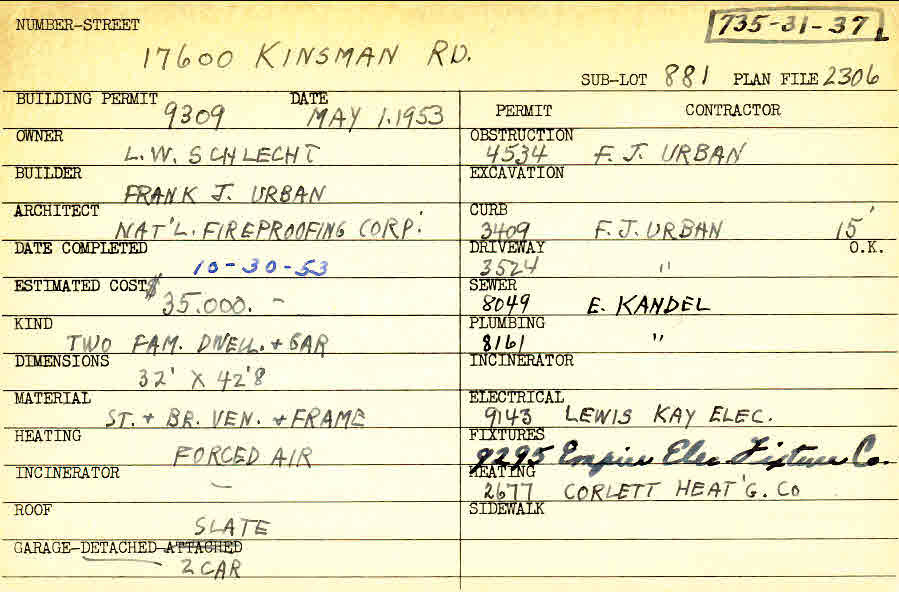 NUMBER-STREET
735-31-37
17600 KINSMAN RD.
SUB-LOT 881 PLAN FILE 2306
BUILDING PERMIT DATE
9309 MAY 1.1953
OWNER
L.W. SCHLECHT
BUILDER
FRANK J. URBAN
ARCHITECT
NAT'L. FIREPROOFING CORP.
DATE COMPLETED
10-30-53
ESTIMATED COST $
35.000. -
KIND
TWO FAM. DWELL. + GAR
DIMENSIONS
32' X 42'8
MATERIAL
ST. + BR. VEN. + FRAME
HEATING
FORCED AIR
INCINERATOR
-
ROOF
SLATE
GARAGE-DETACHED-ATTACHED
2 CAR
PERMIT CONTRACTOR
OBSTRUCTION
4534 F. J. URBAN
EXCAVATION
CURB
3409 F.J. URBAN 15'
DRIVEWAY O.K.
3524 "
SEWER
8049 E. KANDEL
PLUMBING
8161 "
INCINERATOR
ELECTRICAL
9143 LEWIS KAY ELEC.
FIXTURES
9295 Empire Elec Fixture Co.
HEATING
2677 CORLETT HEAT'G. CO
SIDEWALK